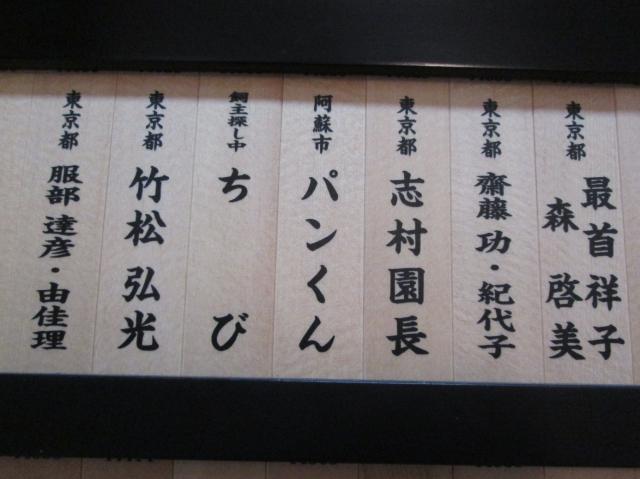 東京都 最首祥子
森啓美
東京都 齋藤功・紀代子
東京都 志村園長
阿蘇市 パンくん
飼主探し中 ちび
東京都 竹松弘光
東京都 服部達彦・由佳理